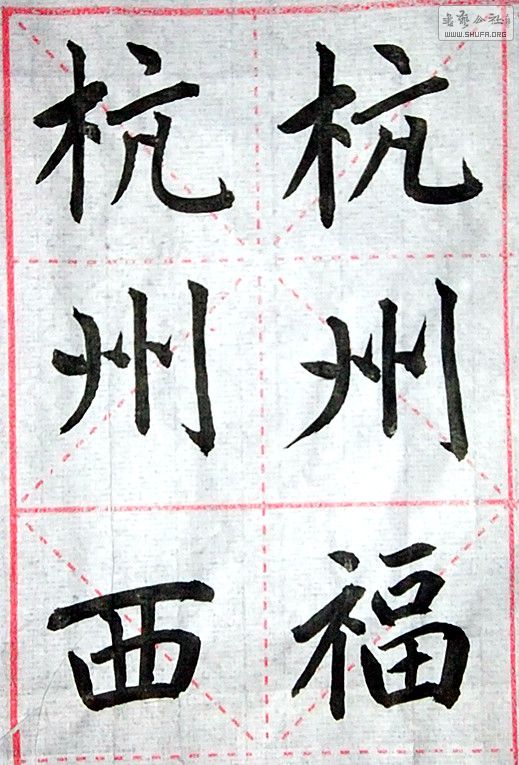 杭州福
杭州西
书艺公社
WWW.SHUFA.ORG